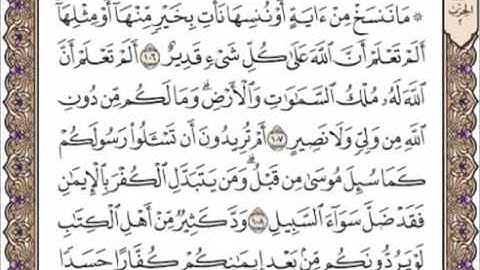 ۞ مَا نَنسَخْ مِنْ ءَايَةٍ أَوْ نُنسِهَا نَأْتِ بِخَيْرٍ مِّنْهَا أَوْ مِثْلِهَا
أَلَمْ تَعْلَمْ أَنَّ ٱللَّهَ عَلَىٰ كُلِّ شَىْءٍ قَدِيرٌ ١٠٦ أَلَمْ تَعْلَمْ أَنَّ
ٱللَّهَ لَهُۥ مُلْكُ ٱلسَّمَـٰوَٰتِ وَٱلْأَرْضِ ۗ وَمَا لَكُم مِّن دُونِ
ٱللَّهِ مِن وَلِىٍّ وَلَا نَصِيرٍ ١٠٧ أَمْ تُرِيدُونَ أَن تَسْـَٔلُوا۟ رَسُولَكُمْ
كَمَا سُئِلَ مُوسَىٰ مِن قَبْلُ ۗ وَمَن يَتَبَدَّلِ ٱلْكُفْرَ بِٱلْإِيمَـٰنِ
فَقَدْ ضَلَّ سَوَآءَ ٱلسَّبِيلِ ١٠٨ وَدَّ كَثِيرٌ مِّنْ أَهْلِ ٱلْكِتَـٰبِ
لَوْ يَرُدُّونَكُم مِّنۢ بَعْدِ إِيمَـٰنِكُمْ كُفَّارًا حَسَدًا